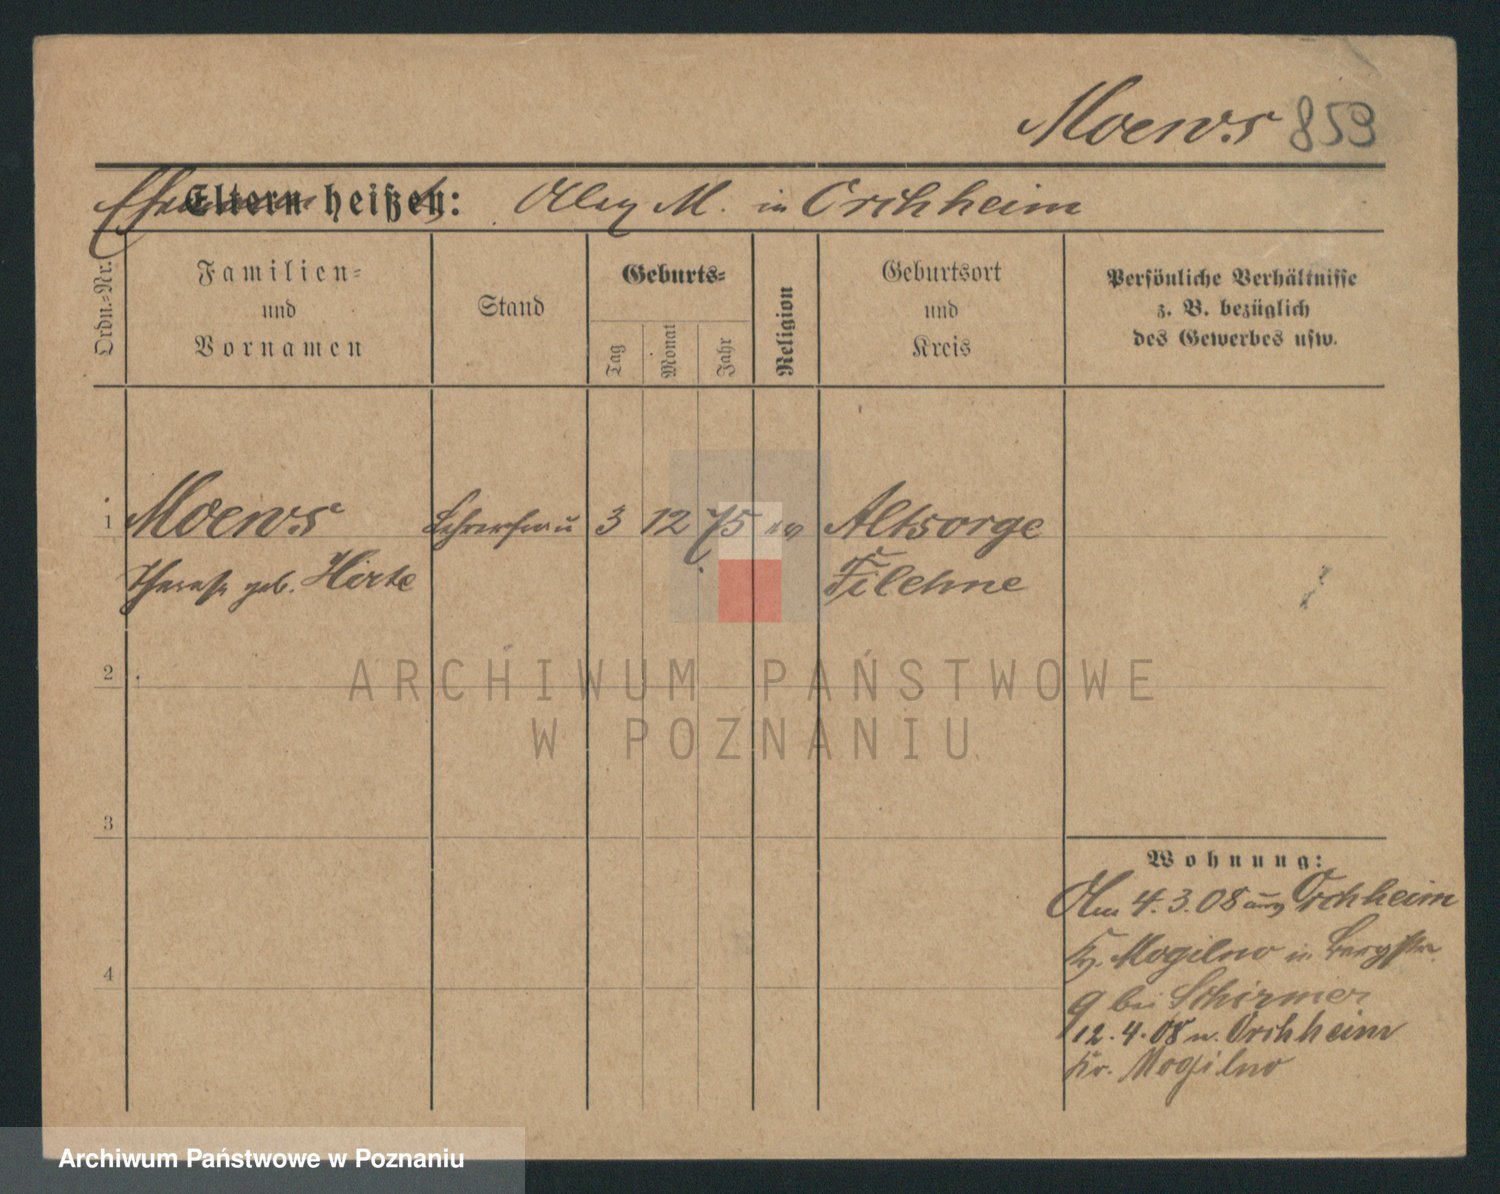 Moews 853
Eltern heißen: Alex M. in Orchheim
Ordn.-Nr.
Familien-
und
Vornamen
Stand
Geburts-
Tag
Monat
Jahr
Religion
Geburtsort
und
Kreis
Persönliche Verhältnisse
z. B. bezüglich
des Gewerbes usw.
1 Moews Lehrerfrau 3 12 75 ev Altsorge
Therese geb. Hirte Filehne
2
3
4
Wohnung:
Am 4.3.08 aus Orchheim
Kr. Mogilno in Bergstr.
9 bei Schirmer
12.4.08 n. Orchheim
Kr. Mogilno
ARCHIWUM PAŃSTWOWE
W POZNANIU
Archiwum Państwowe w Poznaniu